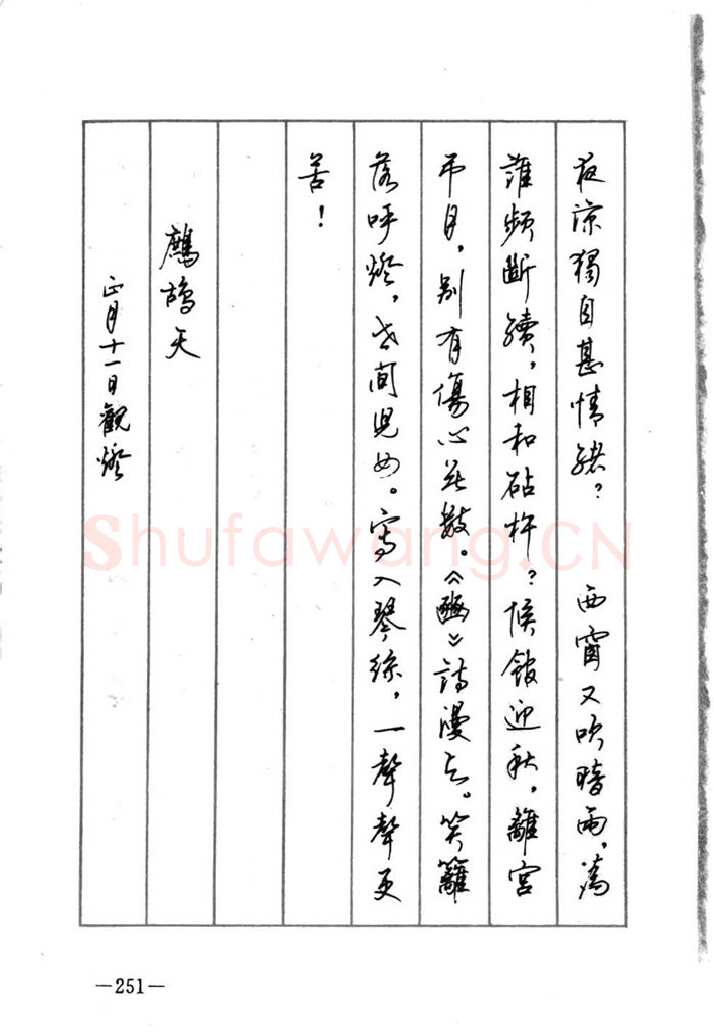 夜涼獨自甚情緒？　西窗又吹暗雨，為
誰頻斷續，相和砧杵？候館迎秋，離宮
弔月，别有傷心無數。《豳》詩漫与。笑籬
落呼燈，世間児女。寫入琴絲，一聲聲更
苦！
鷓鴣天
正月十一日觀燈
Shufawang.CN
—251—